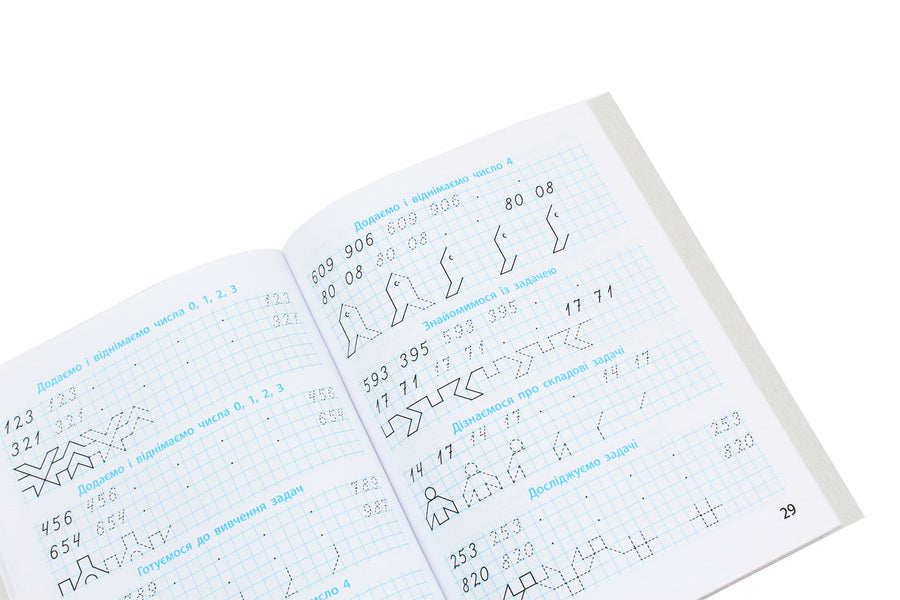 Додаємо і віднімаємо числа 0, 1, 2, 3
123 123 123
321 321 321
Додаємо і віднімаємо числа 0, 1, 2, 3
456 456 456
654 654 654
Готуємося до вивчення задач
789 789
987
число 4
Додаємо і віднімаємо число 4
609 906 609 906
80 08 80 08 80 08
Знайомимося із задачею
593 395 593 395
17 71 17 71 17 71
Дізнаємося про складові задачі
14 17 14 17 14 17
Досліджуємо задачі
253 253 253
820 820 820
29